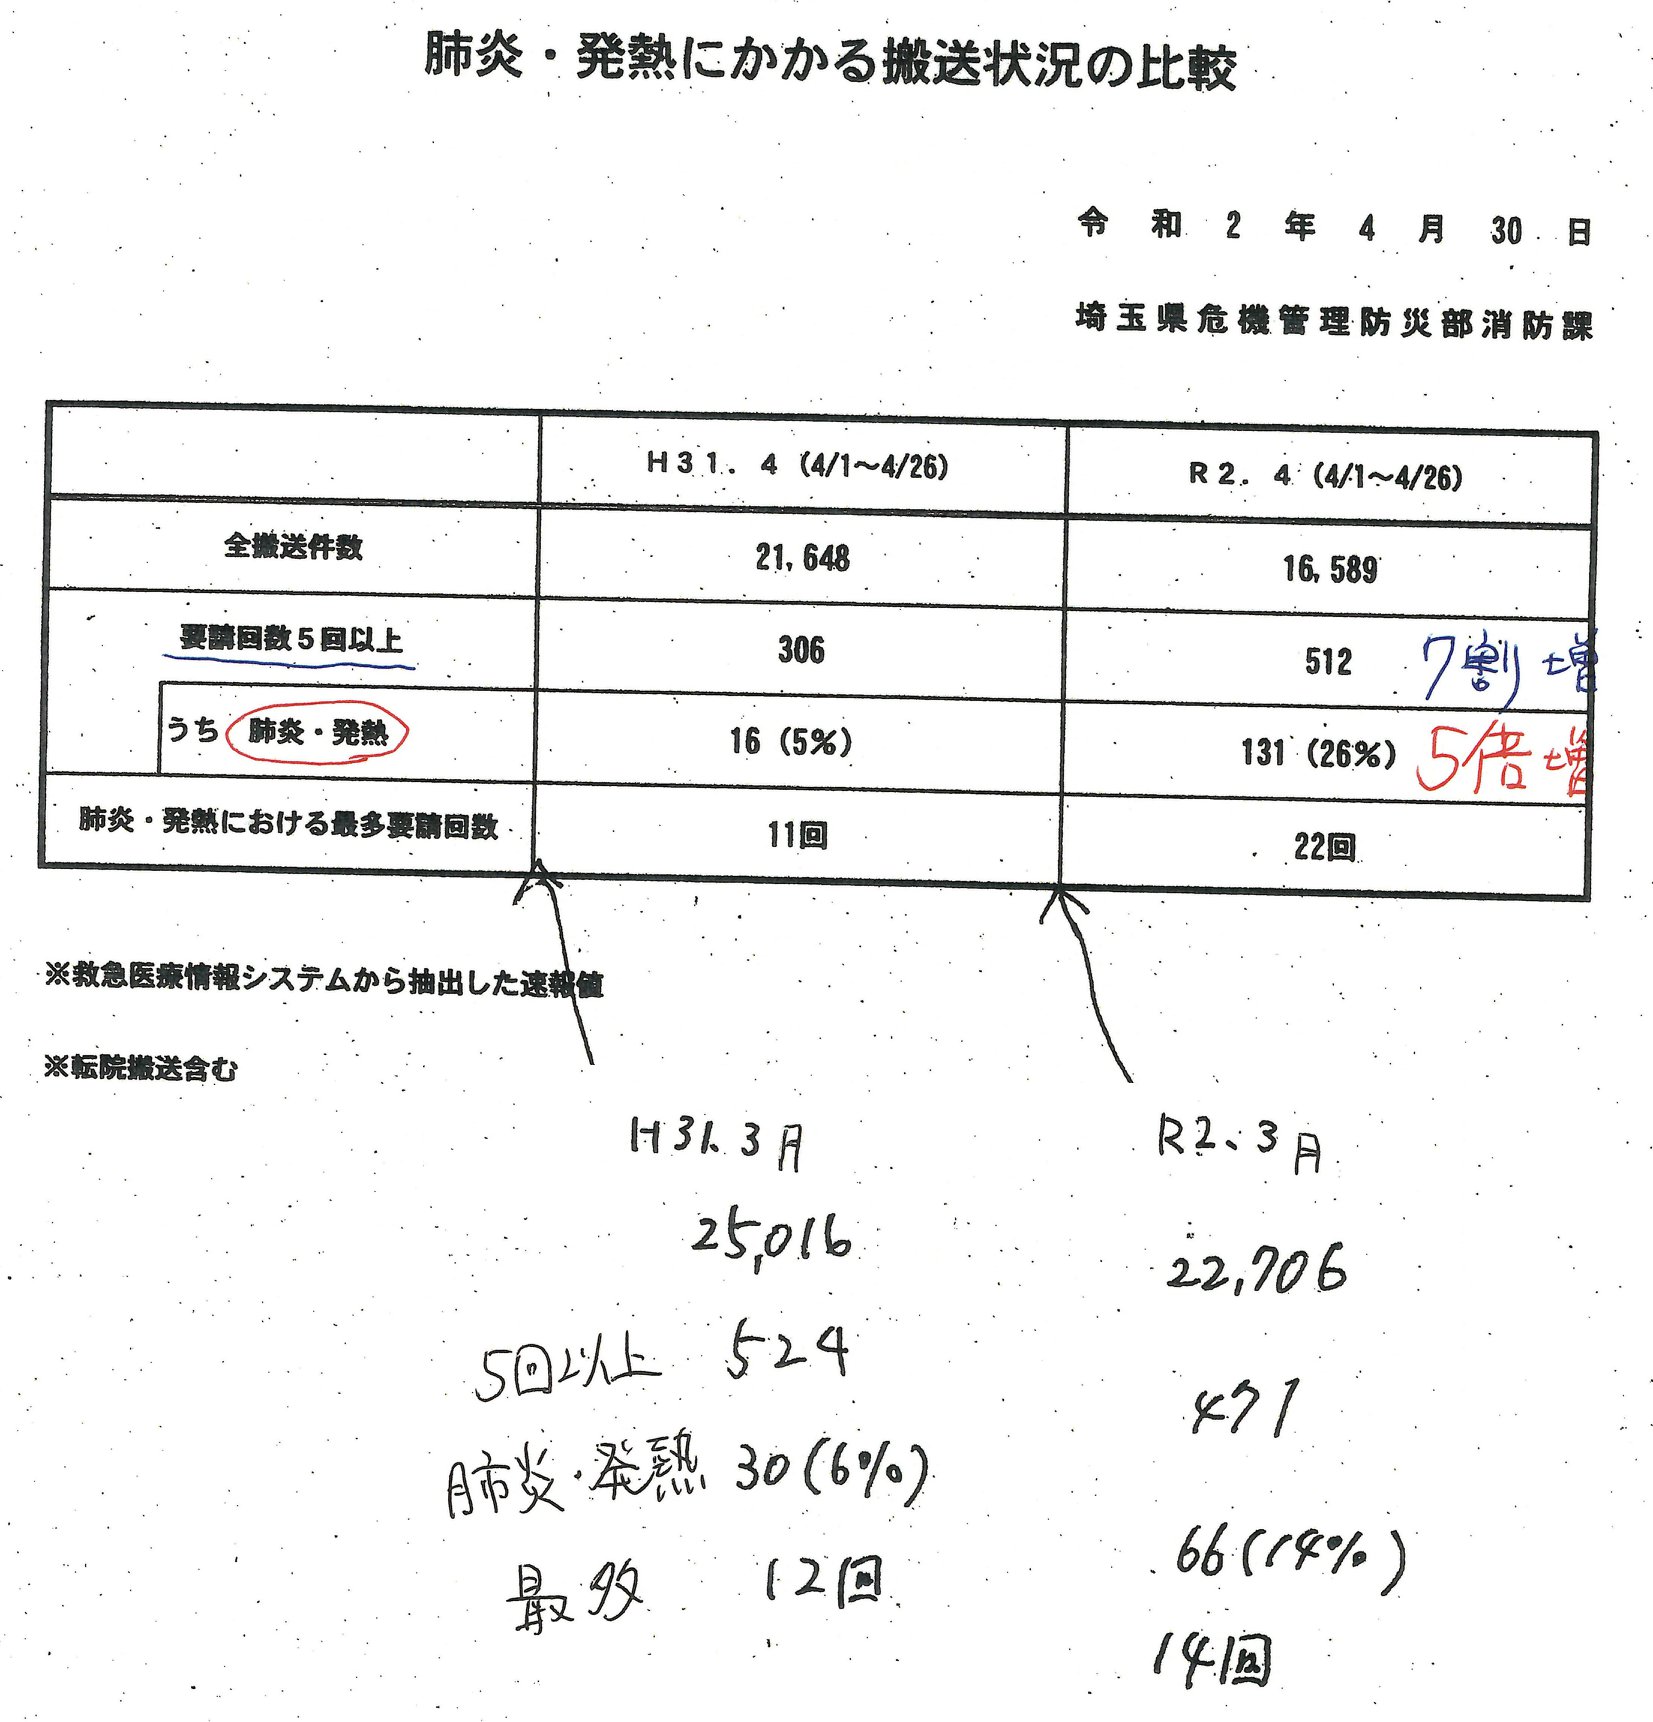 肺炎・発熱にかかる搬送状況の比較
令和2年4月30日
埼玉県危機管理防災部消防課
H31.4(4/1～4/26) R2.4(4/1～4/26)
全搬送件数 21,648 16,589
要請回数5回以上 306 512 7割増
うち 肺炎・発熱 16(5%) 131(26%) 5倍増
肺炎・発熱における最多要請回数 11回 22回
※救急医療情報システムから抽出した速報値
※転院搬送含む
H31.3月 R2.3月
25,016 22,706
5回以上 524 471
肺炎・発熱 30(6%) 66(14%)
最多 12回 14回